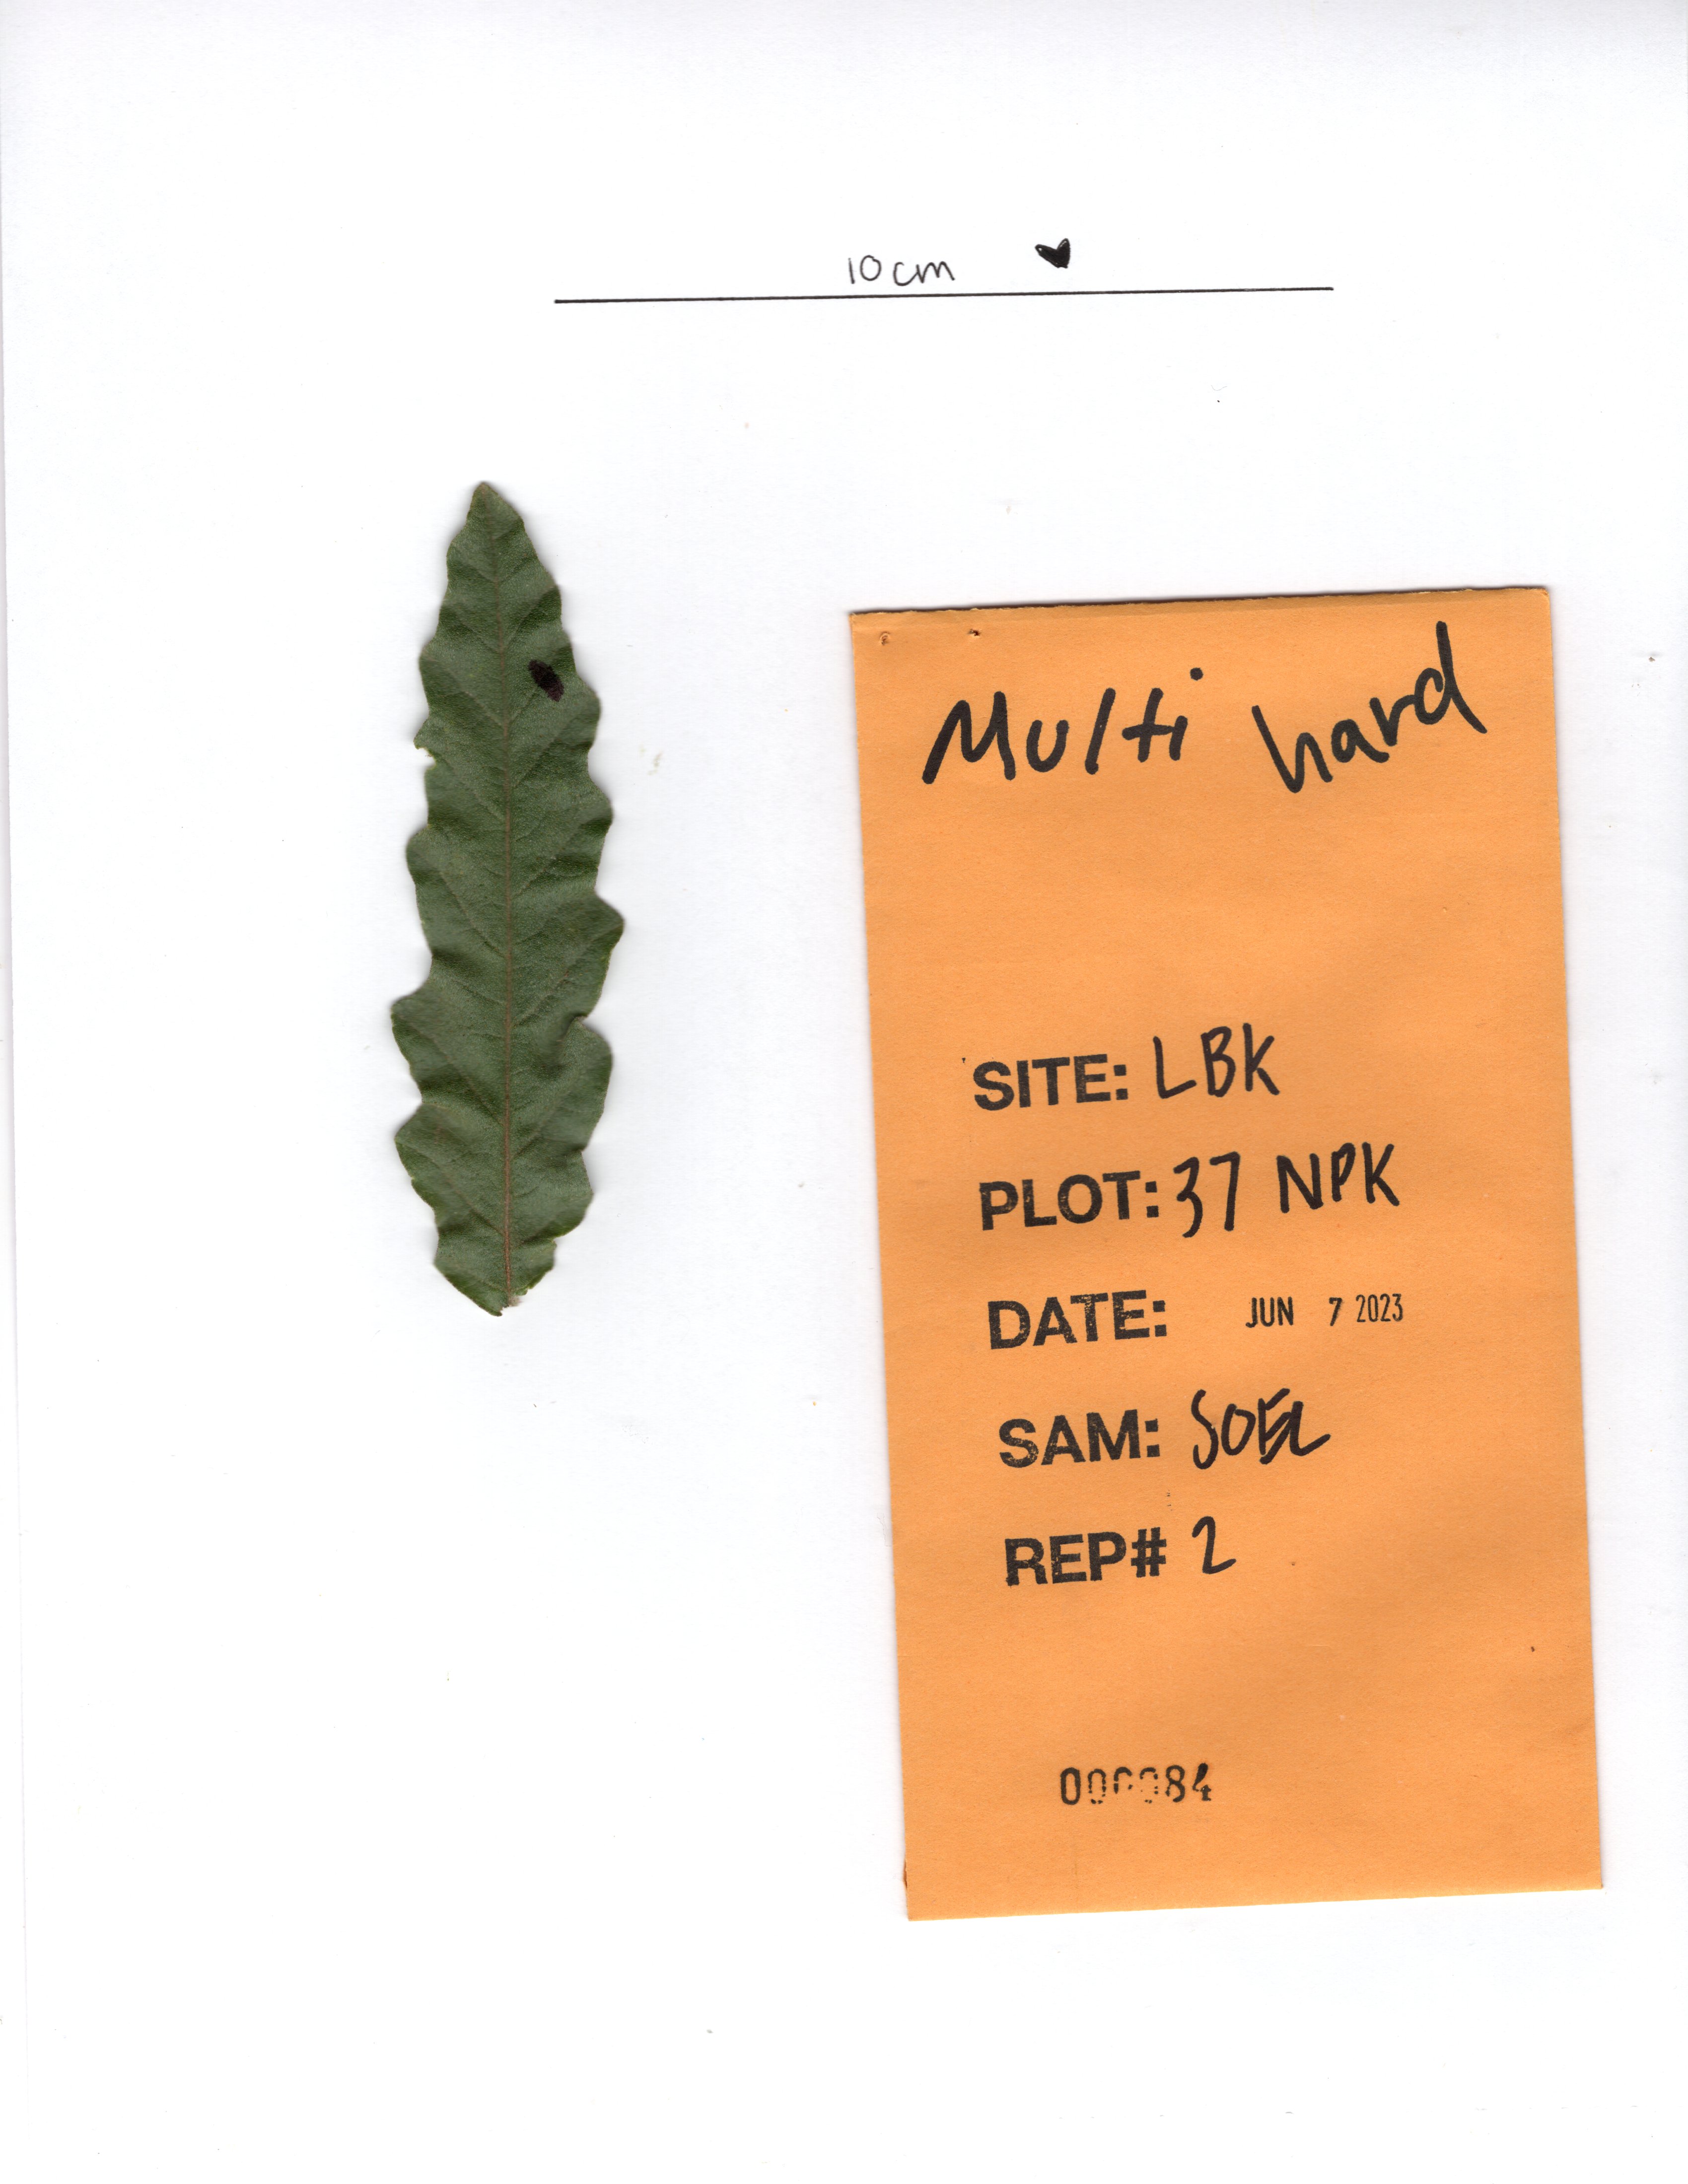 10 cm
Multi hard
SITE: LBK
PLOT: 37 NPK
DATE: JUN 7 2023
SAM: SOEL
REP# 2
000084